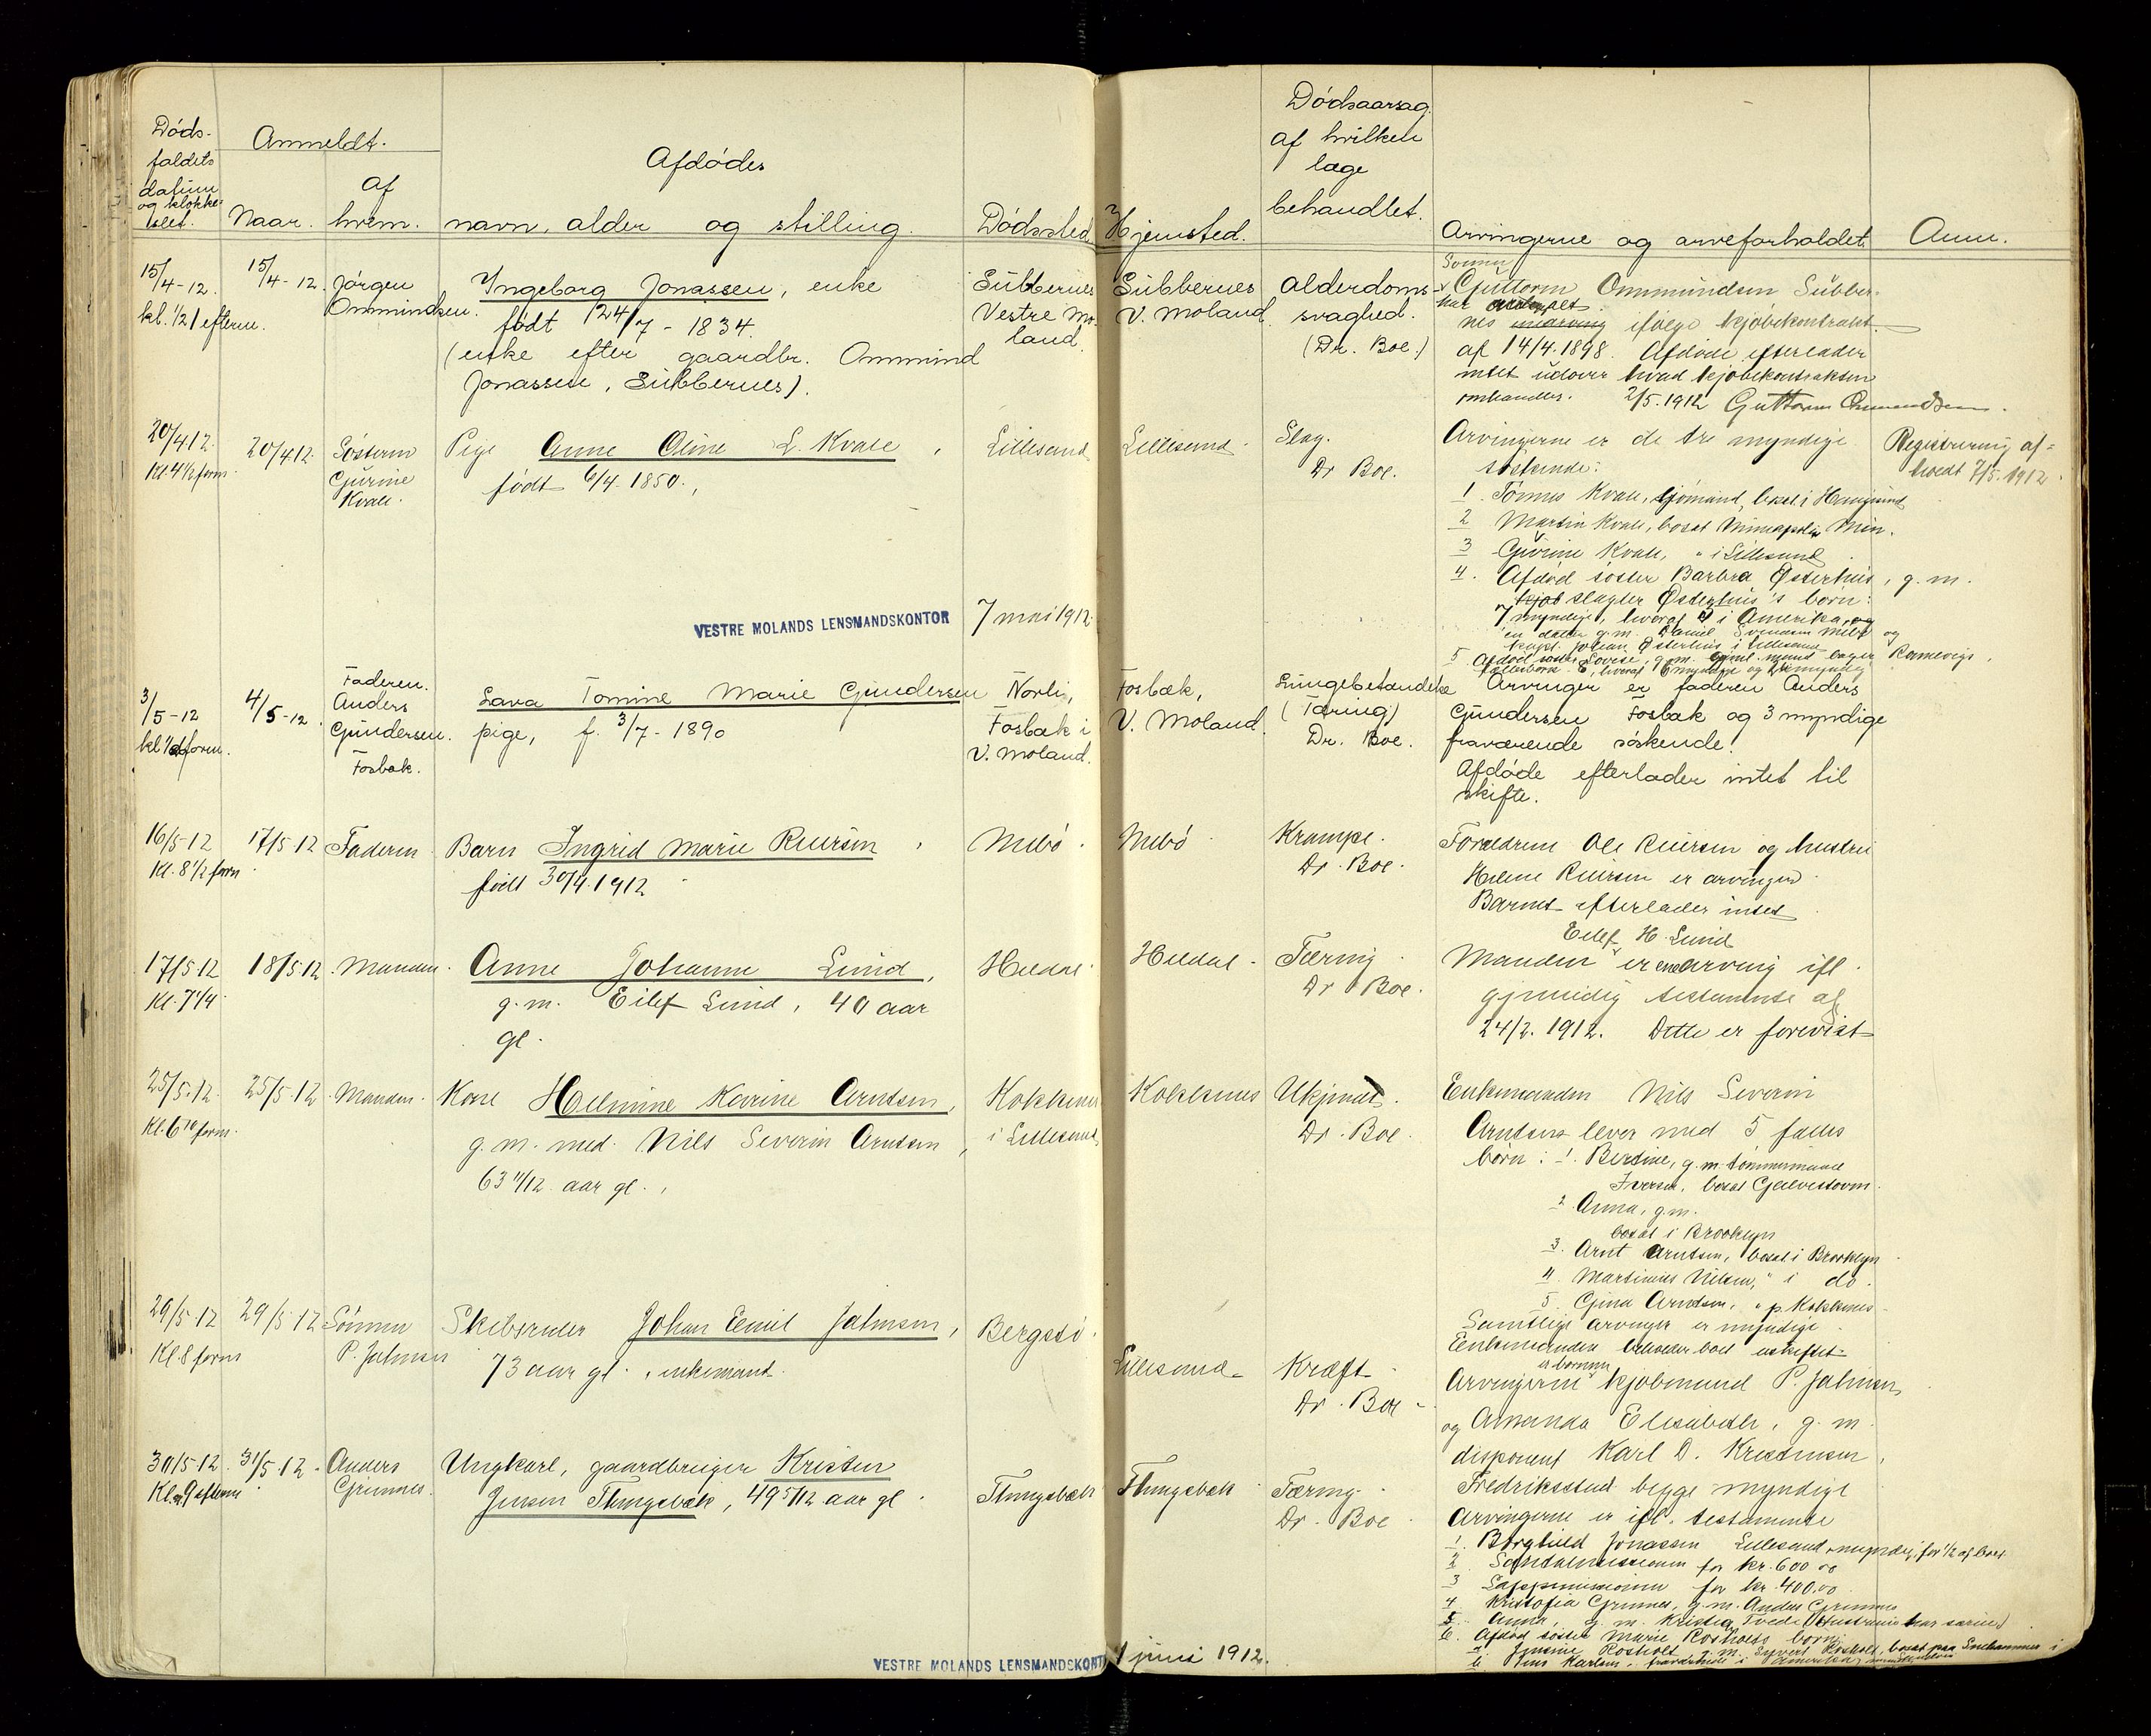 Døds-
faldets
datum
og klokke-
slet.
Anmeldt.
Naar.
af
hvem.
Afdødes
navn, alder og stilling.
Dødssted
Hjemsted.
Dødsaarsag
af hvilken
læge
behandlet.
Arvingerne og arveforholdet
Anm.
15/4-12.
kl. 1/2 1 efterm.
15/4-12.
Jørgen
Ommundsen.
Ingeborg Jonassen, enke
født 24/7 - 1834.
(enke efter gaardbr. Ommund
Jonassen, Subbernes).
Subbernes
Vestre Mo-
land.
Subbernes
V. Moland.
Alderdoms-
svaghed.
(Dr. Boe.)
Sønnen
Guttorm Ommundsen Subber-
nes ifølge kjøbekontrakt
af 14/4.1898. Afdøde efterlader
intet udover hvad kjøbekontrakten
omhandler. 2/5.1912 Guttorm Ommundsen.
20/4 12.
Kl. 4 1/2 form.
20/4 12.
Søsteren
Gurine
Kvale.
Pige Anne Oline L. Kvale,
født 6/4 1850.
Lillesand
Lillesand
Slag.
Dr Boe.
Arvingerne er de tre myndige
søskende:
1. Tønnes Kvale, sjømand, bosat i Haugesund
2 Martin Kvale, bosat Minneapolis Min.
3 Gurine Kvale, " i Lillesand
4. Afdød søster Barbra Østerhus, g. m.
slagter Østerhus's børn:
7 myndige, hvoraf i Amerika, og
en datter g. m. Daniel Svendsen Mebø og
kapt. Johan Østerhus i Lillesand
5. Afdød søster Lovise, g. m.
Registrering af-
holdt 7/5.1912.
VESTRE MOLANDS LENSMANDSKONTOR
7 mai 1912.
3/5-12
4/5-12.
Faderen.
Anders
Gundersen.
Fosbæk.
Lava Tomine Marie Gundersen
pige, f. 3/7 - 1890
Norli,
Fosbæk i
V. Moland.
Fosbæk,
V. Moland.
Lungebetændelse
(Tæring)
Dr. Boe.
Arvinger er faderen Anders
Gundersen Fosbæk og 3 myndige
fraværende søskende.
Afdøde efterlader intet til
skifte.
16/5-12
Kl. 8 1/2 form.
17/5 12
Faderen
Barn Ingrid Marie Reiersen
født 30/4.1912
Mebø.
Mebø
Krampe.
Dr. Boe.
Forældrene Ole Reiersen og hustru
Helene Reiersen er arvinger.
Barnet efterlader intet
17/5 12
Kl. 7 1/4.
18/5 12
Manden.
Anne Johanne Lund,
g. m. Eilef Lund, 40 aar
gl.
Heldal.
Heldal.
Tæring.
Dr Boe.
Eilef H. Lund
Manden er enearving ifl.
gjensidig testamente af
24/2. 1912. Dette er forevist
25/5.12.
Kl. 6 10 form.
25/5.12
Manden.
Kone Helmine Karine Arntsen,
g. m. med. Nils Severin Arntsen,
63 11/12 aar gl.
Kokkenes
i Lillesand
Kokkenes
Ukjendt.
Dr. Boe.
Enkemanden Nils Severin
Arntsen lever med 5 fælles
børn: 1. Bertine, g. m. tømmermand
Iversen, bosat Galvestown.
2 Anna, g. m.
bosat i Brooklyn
3. Arnt Arntsen, bosat i Brooklyn
4. Martinius Nilsen, " i do.
5. Gina Arntsen, " p. Kokkenes
Samtlige arvinger er myndige
Enkemanden beholder boet uskiftet.
29/5 12
Kl. 8 form
29/5 12
Sønnen
P. Jahnsen
Skibsreder Johan Emil Jahnsen,
73 aar gl., enkemand.
Bergstø.
Lillesand.
Kræft
Dr. Boe.
Arvingerne er børnene kjøbmand P. Jahnsen
og Amanda Elisabeth, g. m.
disponent Karl D. Kristensen,
Fredriksstad begge myndige
30/5 12.
Kl. 9 efterm.
31/5.12.
Anders
Grimnes.
Ungkarl, gaardbruger Kristen
Jensen Tlungsbæk, 49 5/12 aar gl.
Tlungsbæk
Tlungsbæk
Tæring.
Dr. Boe
Arvingerne er ifl. testamente
1. Borghild Jonassen Lillesand, myndig, for 1/2 af boet.
2. Santalmissionen for kr. 600 00
3 Lappemissionen for kr. 400.00
4 Kristofia Grimnes, g. m. Anders Grimnes
5. Anna, g. m. Kristen Tvede (Hustruen har særeie)
6. Afdød søster Marie Rosholts børn:
VESTRE MOLANDS LENSMANDSKONT
1 juni 1912.